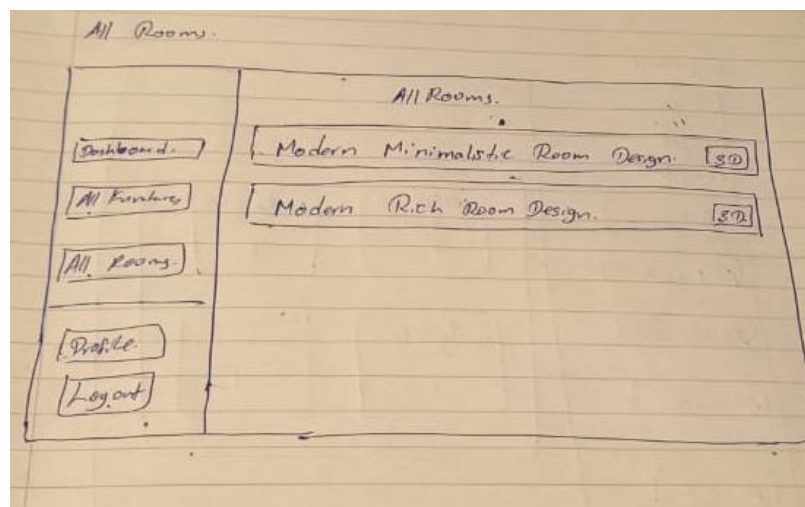 All Rooms.
All Rooms.
Dashboard.
All Furnitures
All Rooms.
Profile.
Logout
Modern Minimalistic Room Design. 3D
Modern Rich Room Design. 3D